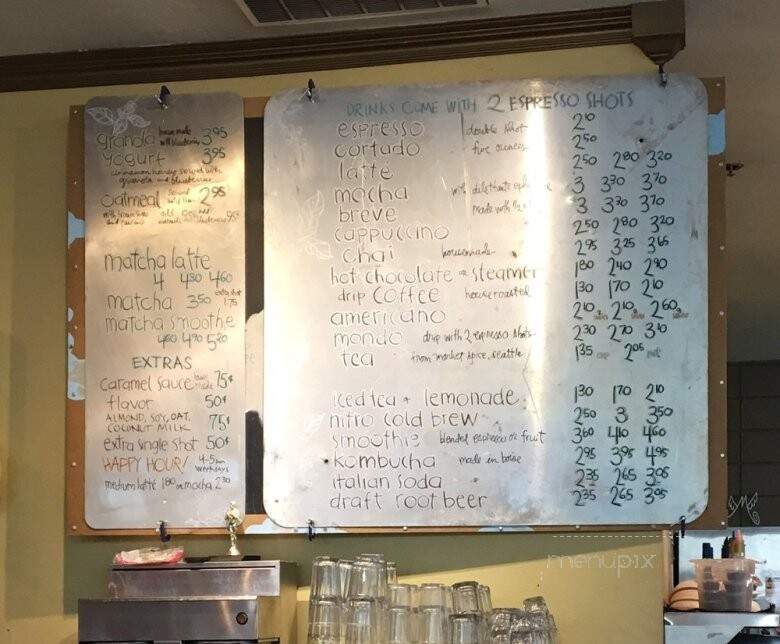 granola house made with blueberries 3.95
yogurt 3.95
cinnamon honey served with
granola and blueberries
oatmeal 2.95
with brown sugar
and
matcha latte
4 4.30 4.60
matcha 3.50 extra shot 1.75
matcha smoothe
4.60 4.90 5.20
EXTRAS
caramel sauce house made 75¢
flavor 50¢
ALMOND, SOY, OAT,
COCONUT MILK 75¢
extra single shot 50¢
HAPPY HOUR! 4-5pm weekdays
medium latte 1.80 or mocha 2.30
DRINKS COME WITH 2 ESPRESSO SHOTS
espresso double shot 2.10
cortado five ounces 2.50
latte 2.50 2.80 3.20
mocha with dilettante 3 3.30 3.70
breve made with 3 3.30 3.70
cappuccino 2.50 2.80 3.20
chai housemade 2.95 3.25 3.65
hot chocolate or steamer 1.80 2.40 2.90
drip coffee house roasted 1.30 1.70 2.10
americano 2.10 2.10 2.60
mondo drip with 2 espresso shots 2.30 2.70 3.10
tea from market spice, seattle 1.35 cup 2.05 pot
iced tea + lemonade 1.30 1.70 2.10
nitro cold brew 2.50 3 3.50
smoothie blended espresso or fruit 3.60 4.10 4.60
kombucha made in boise 2.95 3.95 4.95
italian soda 2.35 2.65 3.05
draft root beer 2.35 2.65 3.05
menupix